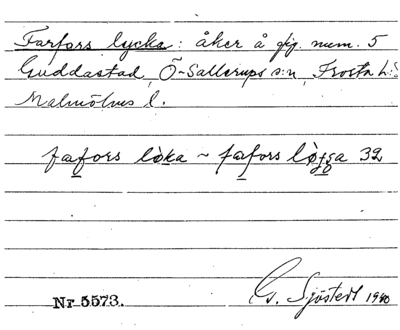 Farfors lycka: åker å fig. num. 5
Guddastad, Ö-Sallerups s:n, Frosta h:
Malmöhus l.
fafors løka ~ fafors løgga 32
Nr 5573.
G. Sjöstedt 1940